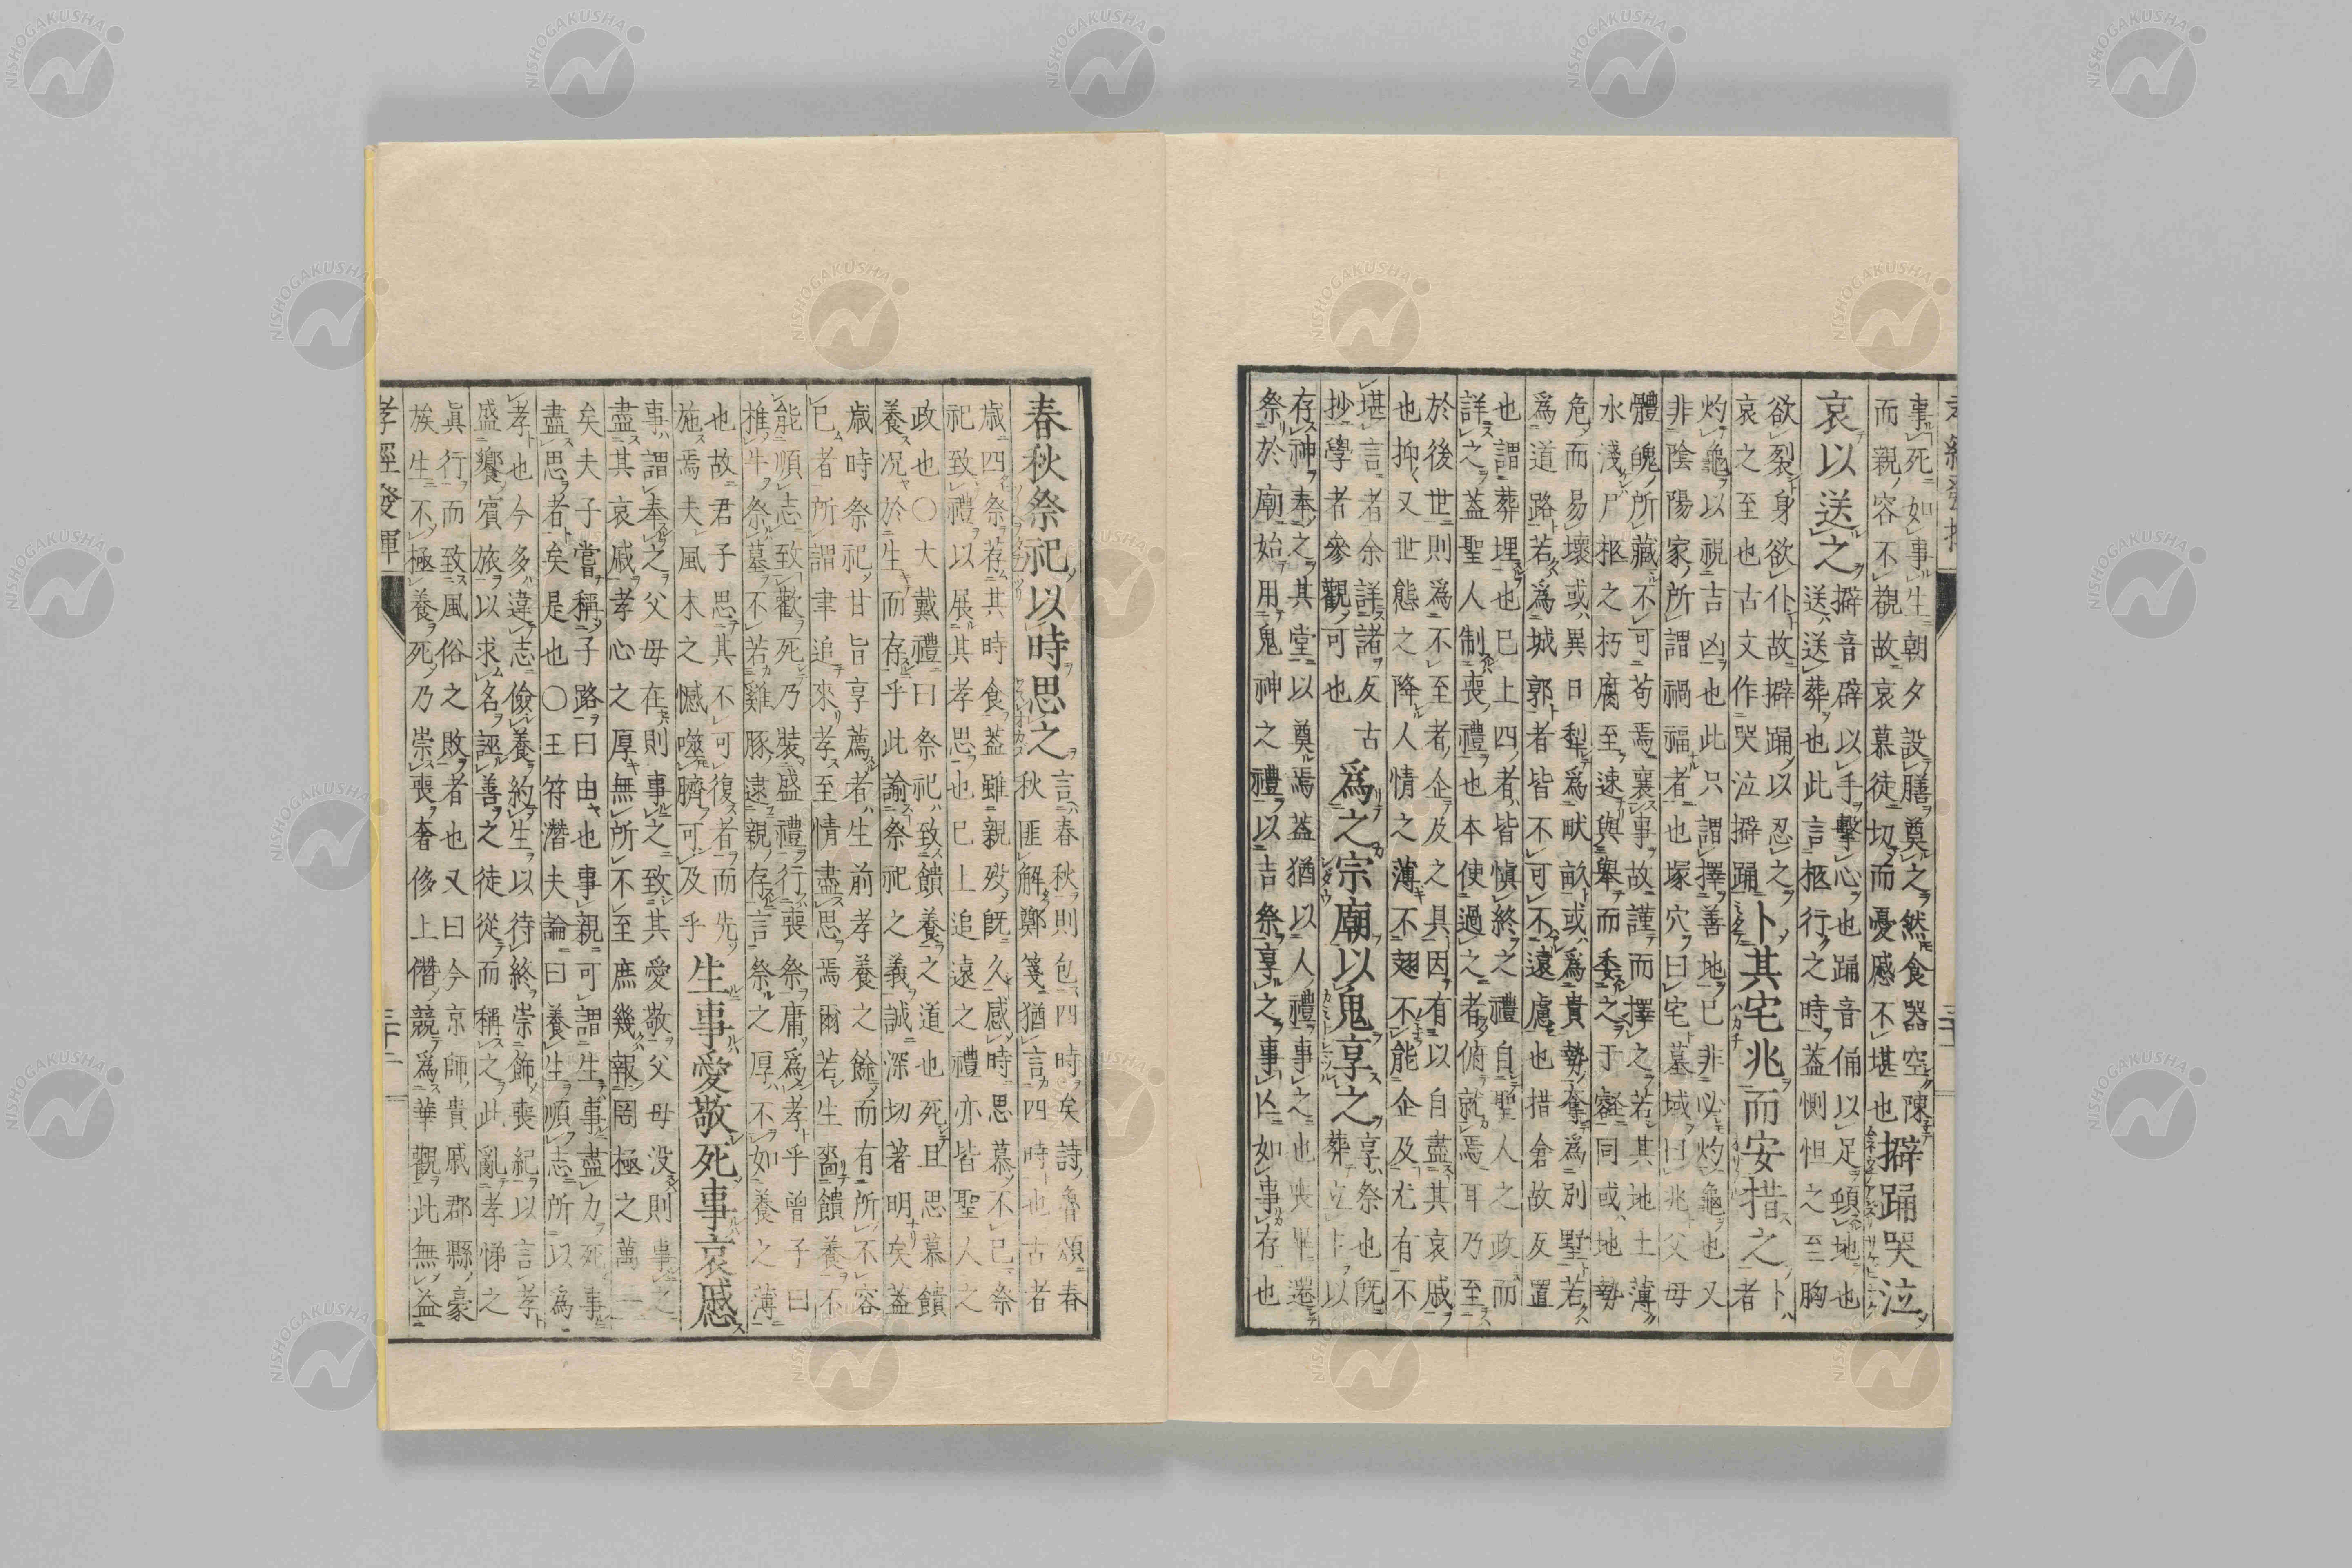 事死如事生朝夕設膳奠之然食器空陳
而親容不覩故哀慕徒切而憂慼不堪也
擗踊哭泣
哀以送之
擗音辟以手擊心也踊音俑以足頓地也
送送葬也此言柩行之時蓋惻怛之至胸
欲裂身欲仆故擗踊以忍之
哀之至也古文作哭泣擗踊
卜其宅兆而安措之
卜
者
灼龜以視吉凶也此只謂擇善地已非必灼龜也又
非陰陽家所謂禍福者也塚穴曰宅墓域曰兆父母
體魄所藏不可苟焉襄事故謹而擇之若其地土薄
水淺尸柩之朽腐至速與舉而委之于壑同或地勢
危而易壞或異日犁爲畎畝或爲貴勢奪爲別墅若
爲道路若爲城郭者皆不可不遠慮也措倉故反置
也謂葬埋也已上四者皆愼終之禮自聖人之政而
詳之蓋聖人制喪禮也本使過之者俯就焉耳乃至
於後世則爲不至者企及之具因有以自盡其哀戚
也抑又世態之降人情之薄不翅不能企及尤有不
堪言者余詳諸反古
抄學者參觀可也
爲之宗廟以鬼享之
享祭也既
葬立主以
存神奉之其堂以奠焉蓋猶以人禮事之也喪畢遷
祭於廟始用鬼神之禮以吉祭享之事亡如事存也
春秋祭祀以時思之
言春秋則包四時矣詩魯頌春
秋匪解鄭箋猶言四時也古者
歳四祭荐其時食蓋雖親歿既久感時思慕不已祭
祀致禮以展其孝思也已上追遠之禮亦皆聖人之
政也〇大戴禮曰祭祀致饋養之道也死且思慕饋
養况於生而存乎此諭祭祀之義誠深切著明矣蓋
歳時祭祀甘旨享薦者生前孝養之餘而有所不容
已者所謂聿追來孝至情盡思焉爾若生嗇饋養不
能順志致歡死乃裝盛禮行喪祭庸爲孝乎曾子曰
推牛祭墓不若雞豚逮親存言祭之厚不如養之薄
也故君子思其不可復者而先
施焉夫風木之憾噬臍可及乎
生事愛敬死事哀慼
事謂奉之父母在則事之致其愛敬父母没則事之
盡其哀戚孝心之厚無所不至庶幾報罔極之萬一
矣夫子嘗稱子路曰由也事親可謂生事盡力死事
盡思者矣是也〇王符潛夫論曰養生順志所以爲
孝也今多違志儉養約生以待終崇飾喪紀以言孝
盛饗賓旅以求名誣善之徒從而稱之此亂孝悌之
眞行而致風俗之敗者也又曰今京師貴戚郡縣豪
族生不極養死乃崇喪奢侈上僭競爲華觀此無益
孝經發揮
三十二
NISHOGAKUSHA